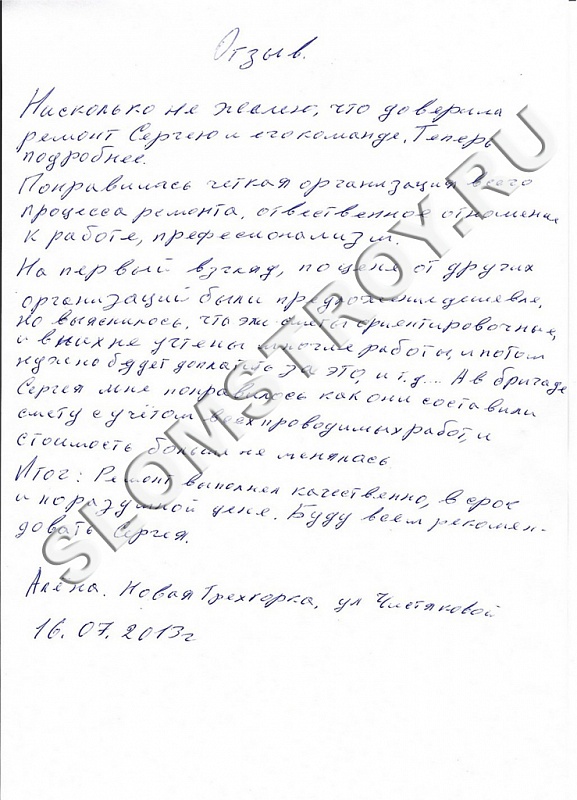 Отзыв.
Нисколько не жалею, что доверила
ремонт Сергею и его команде. Теперь
подробнее.
Понравилась четкая организация всего
процесса ремонта, отвественное отношение
к работе, префесионализм.
На первый взгляд, по цене от других
организаций были предложения дешевле,
но выяснилось, что эти сметы ориентировочные,
и в них не учтены многие работы, и потом
нужно будет доплатить за это, и т.д.... А в бригаде
Сергея мне понравилось как они составили
смету с учётом всех проводимых работ, и
стоимость больше не менялась.
Итог: Ремонт выполнен качественно, в срок
и по разумной цене. Буду всем рекомен-
довать Сергея.
Алёна. Новая Трехгорка, ул Чистяковой
16.07.2013г
SLOMSTROY.RU